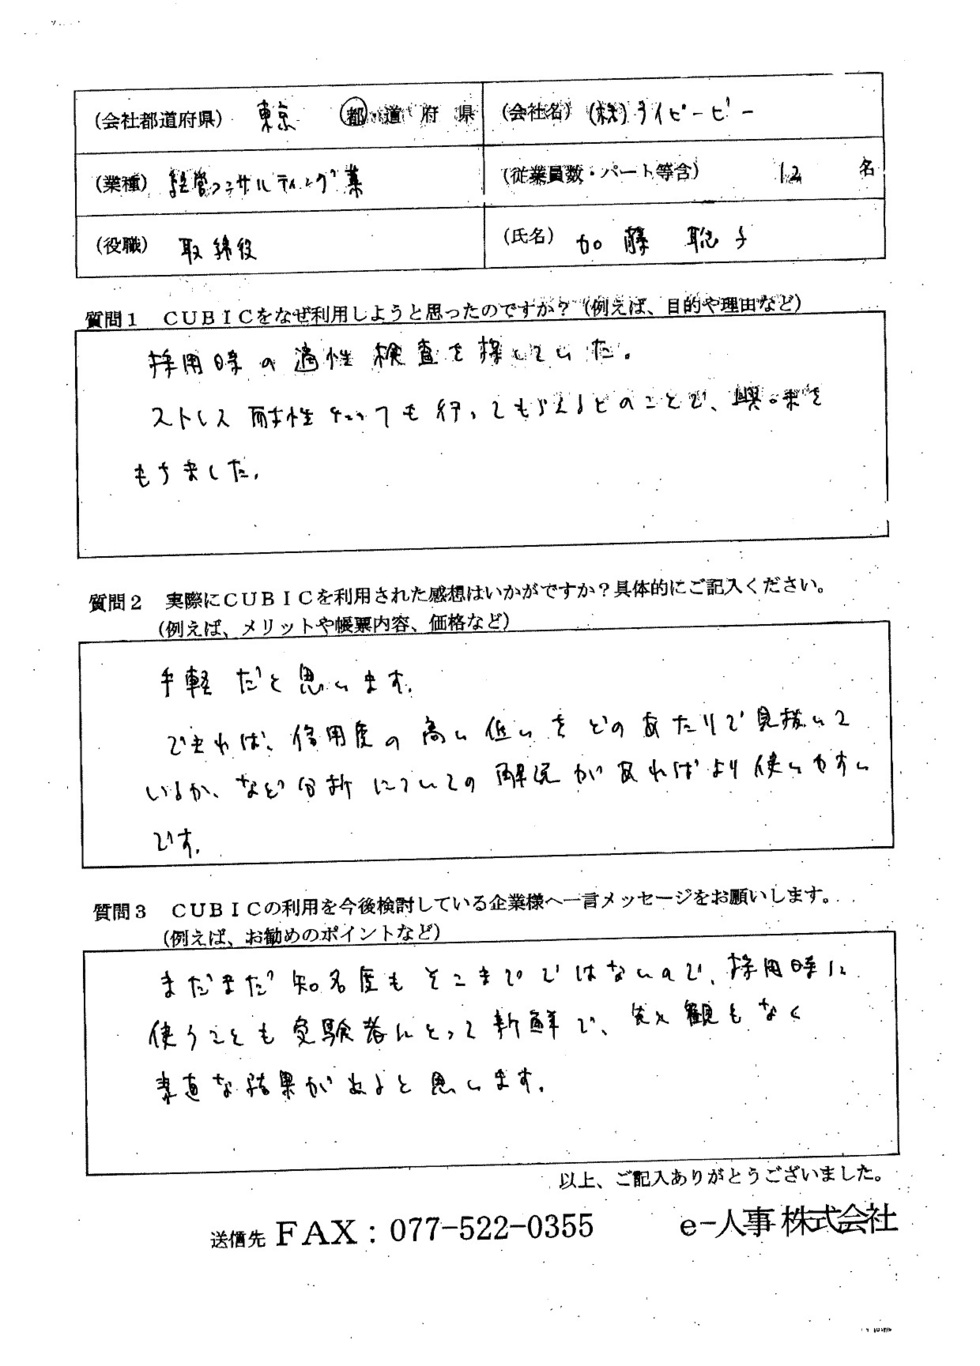 (会社都道府県) 東京 都道府県
(会社名) (株)ライビービー
(業種) 経営コンサルティング業
(従業員数・パート等含) 12 名
(役職) 取締役
(氏名) 加藤 聡子
質問1 CUBICをなぜ利用しようと思ったのですか？(例えば、目的や理由など)
採用時の適性検査を探していた。
ストレス耐性チェックも行ってもらえるとのことで、興味を
もちました。
質問2 実際にCUBICを利用された感想はいかがですか？具体的にご記入ください。
(例えば、メリットや帳票内容、価格など)
手軽だと思います。
できれば、信用度の高い低いをどのあたりで見抜いて
いるか、など分析についての解説があればより使いやすい
です。
質問3 CUBICの利用を今後検討している企業様へ一言メッセージをお願いします。
(例えば、お勧めのポイントなど)
まだまだ知名度もそこまでではないので、採用時に
使うことも受験者にとって新鮮で、先入観もなく
素直な結果が出ると思います。
以上、ご記入ありがとうございました。
送信先 FAX：077-522-0355 e-人事株式会社